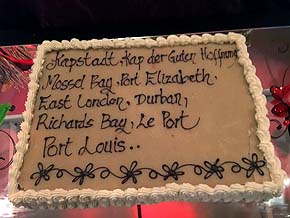 Kapstadt, Kap der Guten Hoffnung
Mossel Bay, Port Elizabeth,
East London, Durban,
Richards Bay, Le Port
Port Louis..